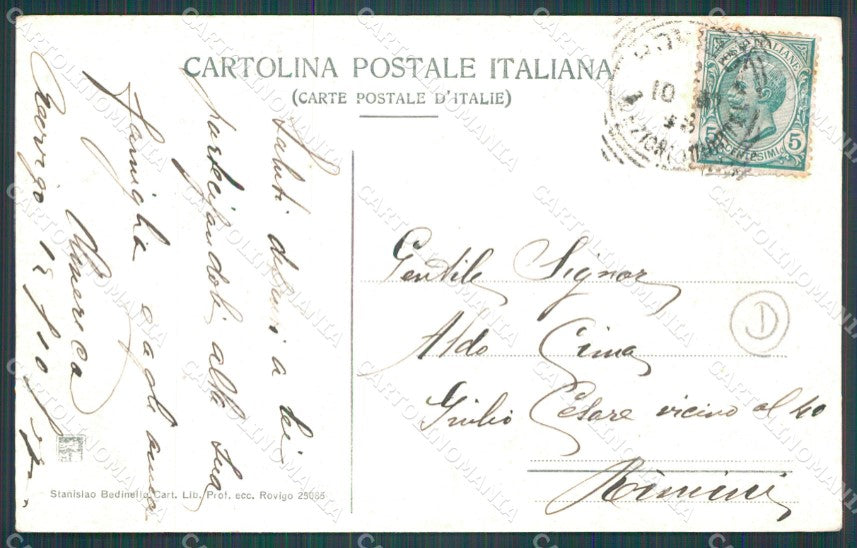 CARTOLINA POSTALE ITALIANA
(CARTE POSTALE D'ITALIE)
POSTE ITALIANE
5 5
CENTESIMI
10
Saluti a lei
partecipandoli alla sua
famiglia
America
Rovigo 12/10
Gentile Signor
Aldo Cima
Giulio Cesare vicino al 40
Rimini
D
Stanislao Bedinello Cart. Lib. Prof. ecc. Rovigo
CARTOLINOMANIA